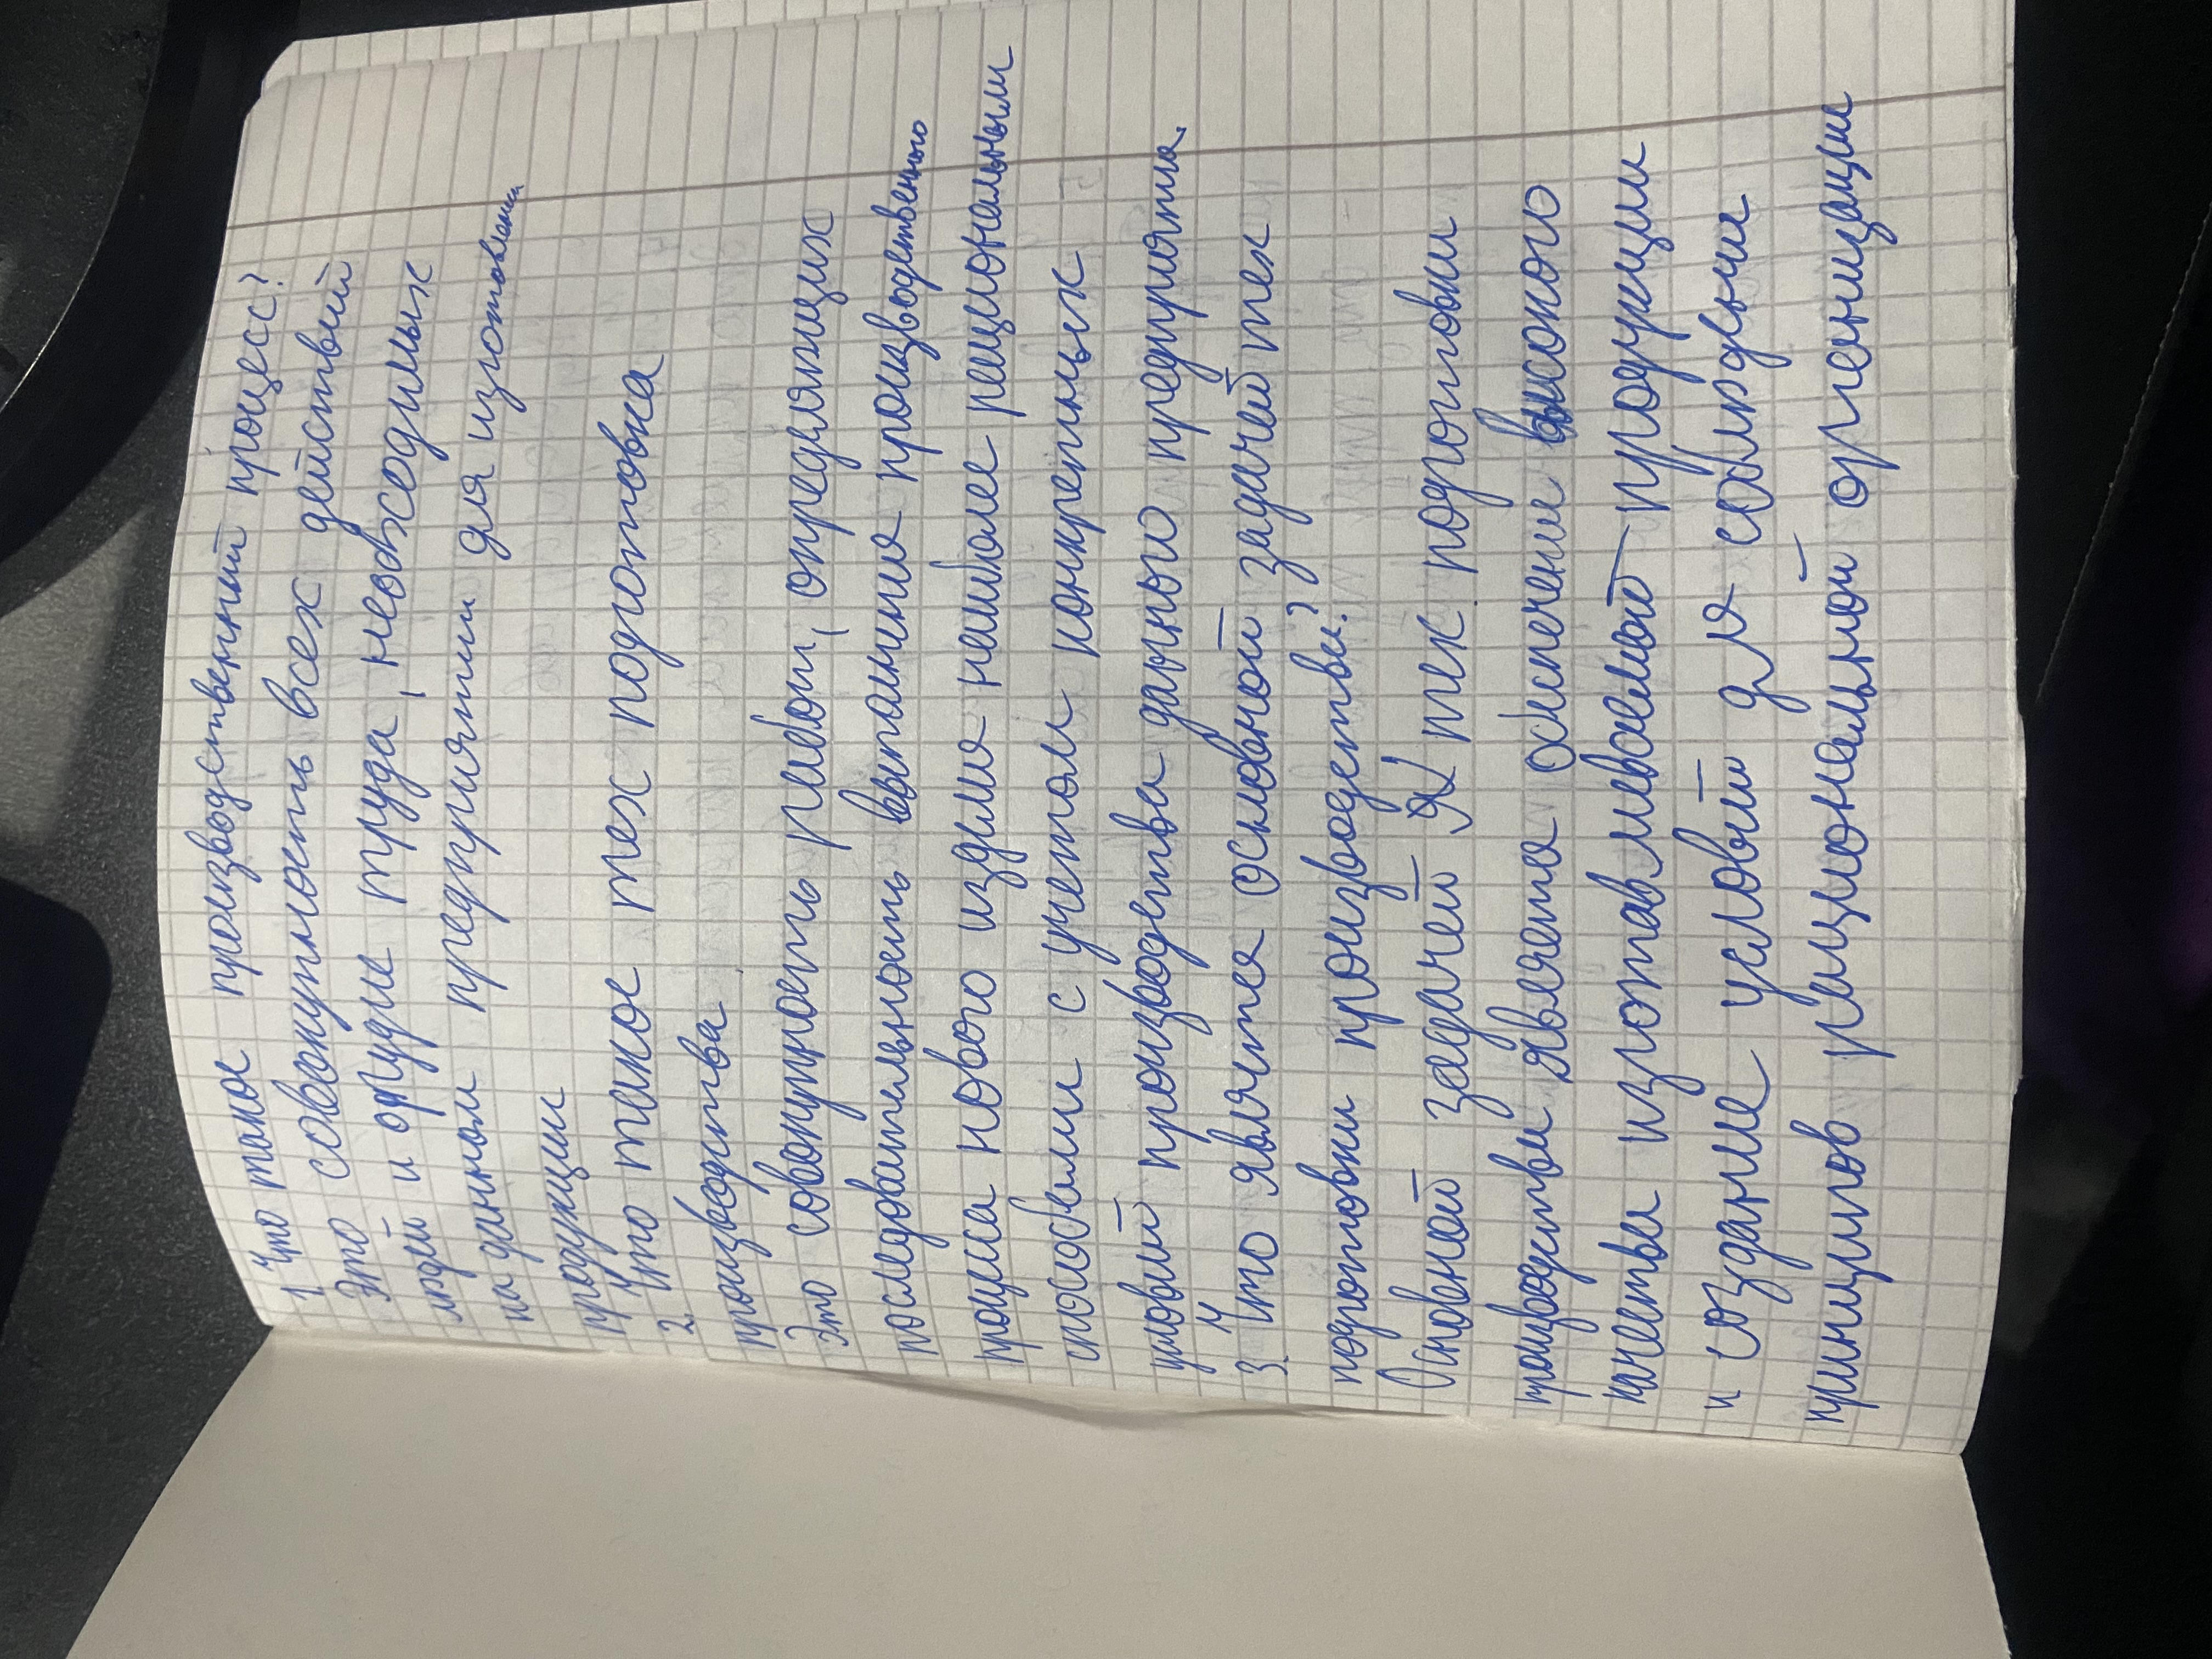 1 Что такое производственный процесс?
Это совокупность всех действий
людей и орудие труда, необходимых
на данном предприятии для изготовления
продукции
2. Что такое тех подготовка
производства
Это совокупность работ, определяющих
последовательность выполнение производственного
процесса нового изделия наиболее рациональным
способами с учетом конкретных
условий производства данного предприятия.
3. Что является основной задачей тех
подготовки производства?
Основной задачей тех подготовки
производства является обеспечение высокого
качества изготавливаемой продукции
и создание условий для соблюдения
принципов рациональной организации